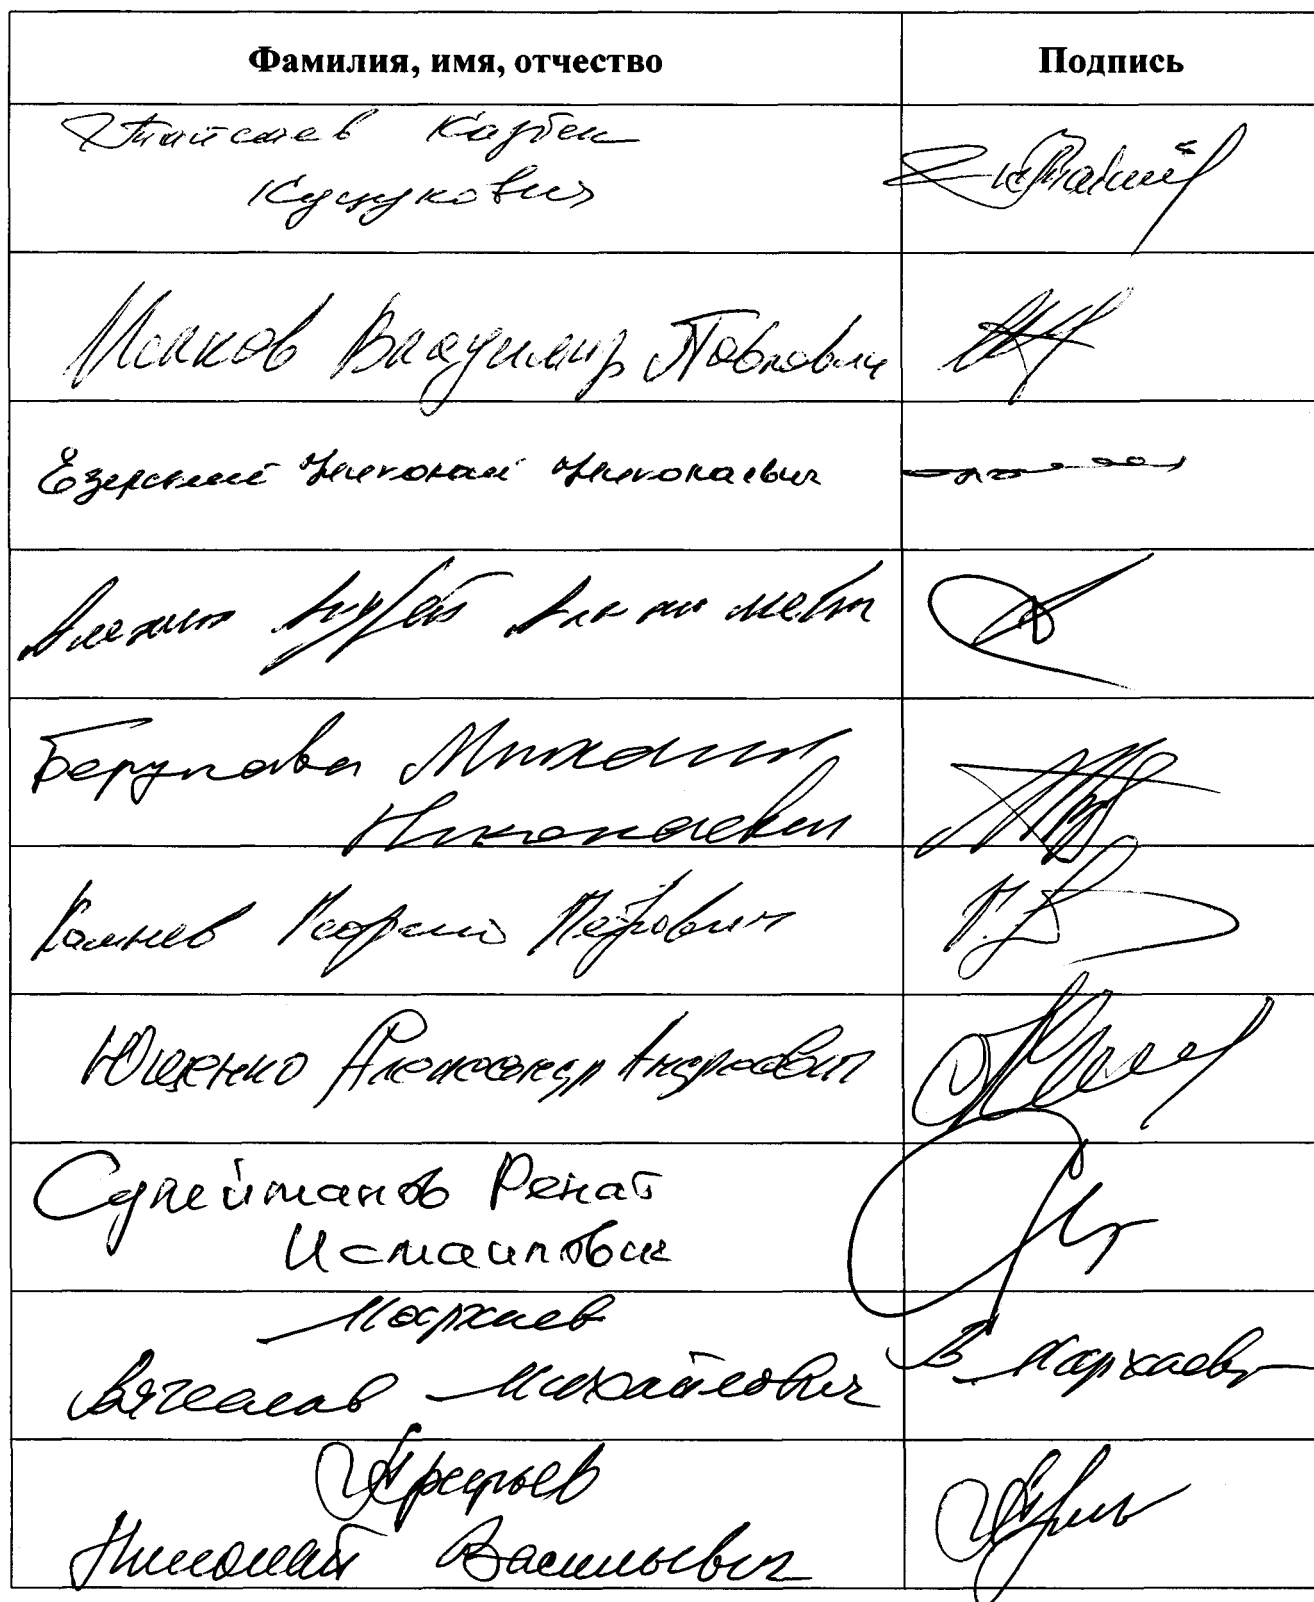 Фамилия, имя, отчество Подпись
Тайсаев Казбек
Куцукович
Исаков Владимир Павлович
Езерский Николай Николаевич
Алехин Андрей Анатольевич
Берулава Михаил
Николаевич
Камнев Георгий Петрович
Ющенко Александр Андреевич
Сулейманов Ренат
Исмаилович
Мархаев
Вячеслав Михайлович В Мархаев
Арефьев
Николай Васильевич